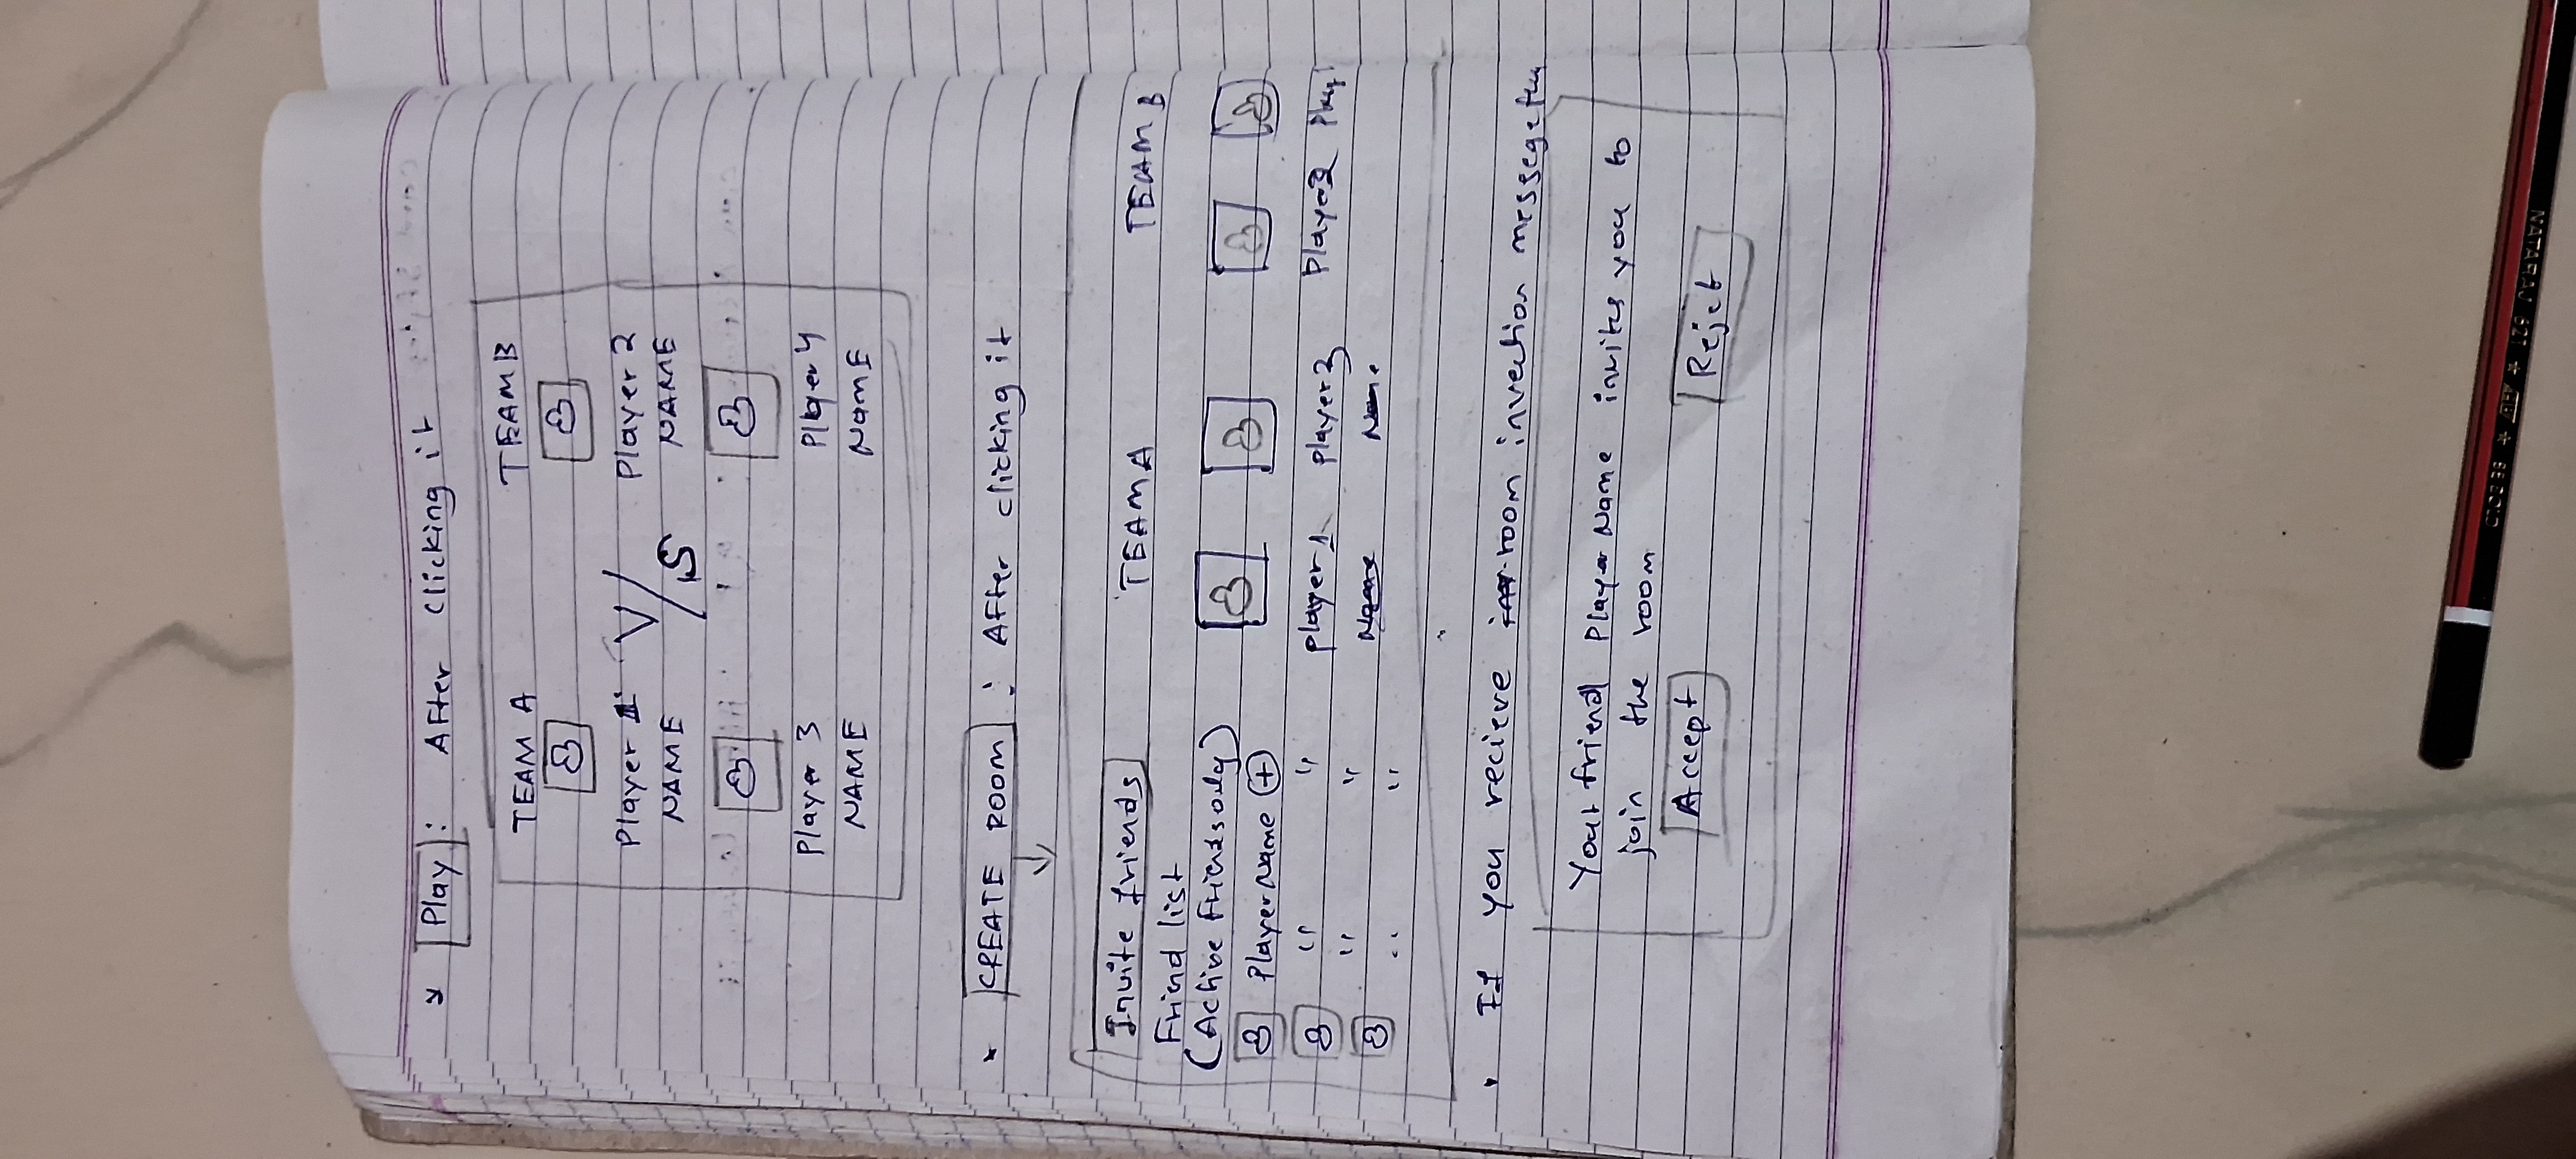 Play : After clicking it
TEAM A TEAM B
Player 1 V/S Player 2
NAME NAME
Player 3 Player 4
NAME NAME
CREATE ROOM : After clicking it
Invite friends TEAM A TEAM B
Friend list
(Active friends only)
Player Name +
" "
" "
" "
player 1 player 3 player 2
Name Name
If you recieve room invection messege
Your friend Player Name invites you to
join the room
Accept Rejct
NATARAJ 621 HB BOLD